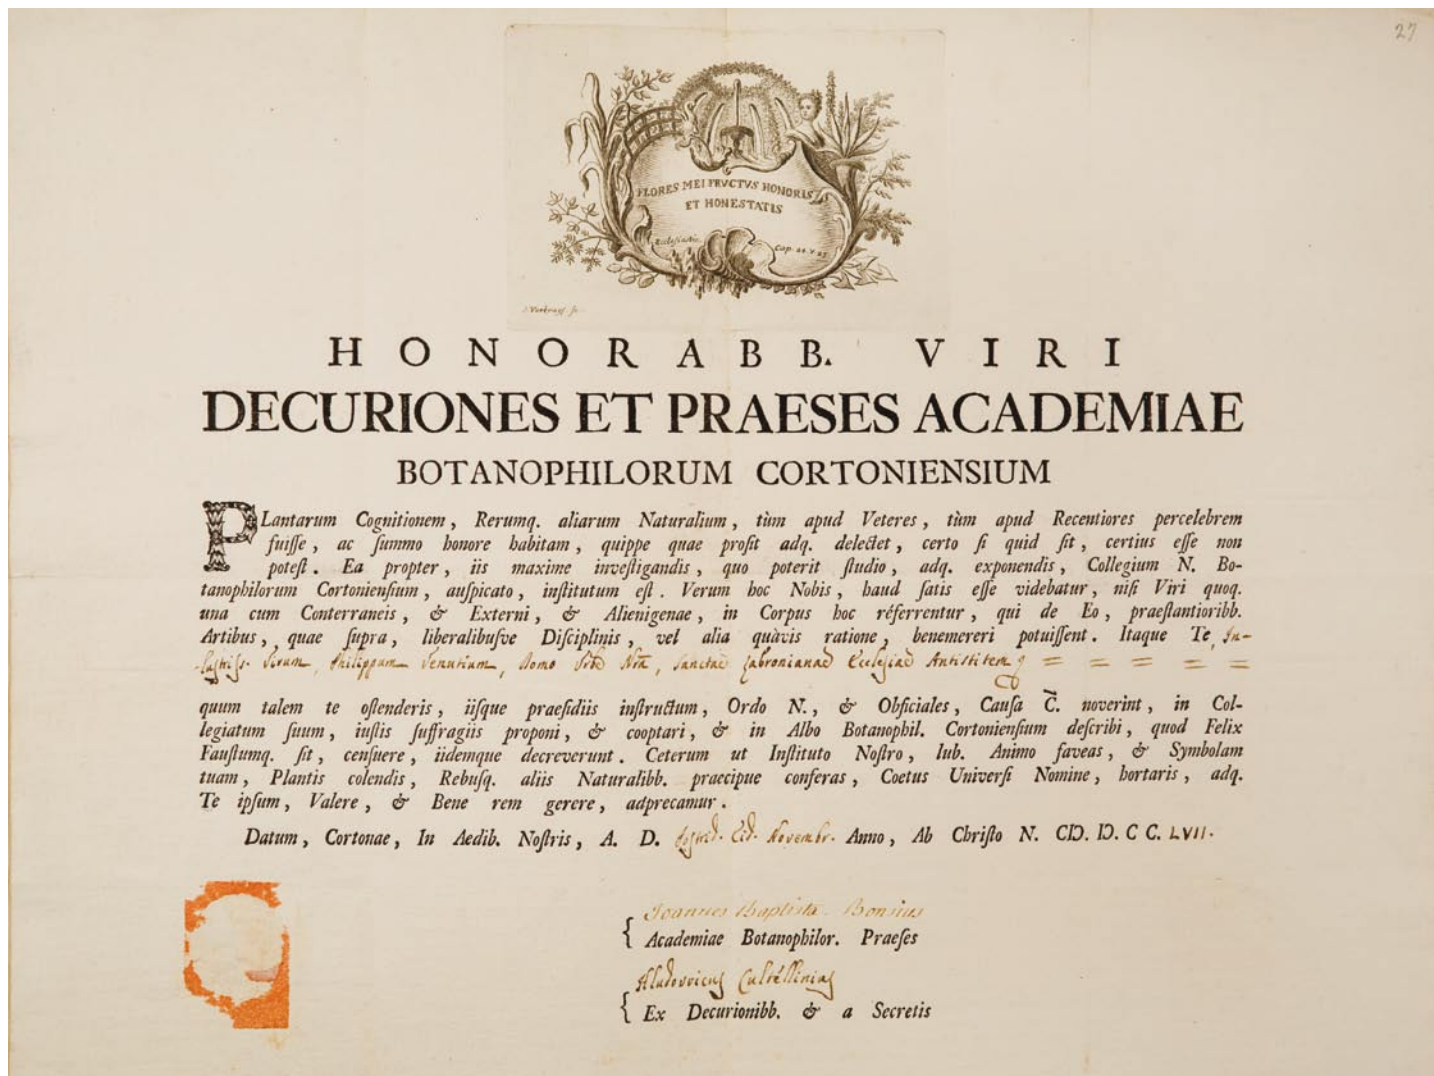 27
FLORES MEI FRVCTVS HONORIS
ET HONESTATIS
Ecclesiastic. Cap. 24. V. 23
HONORABB. VIRI
DECURIONES ET PRAESES ACADEMIAE
BOTANOPHILORUM CORTONIENSIUM
PLantarum Cognitionem, Rerumq. aliarum Naturalium, tùm apud Veteres, tùm apud Recentiores percelebrem
fuiſſe, ac ſummo honore habitam, quippe quae proſit adq. delectet, certo ſi quid ſit, certius eſſe non
poteſt. Ea propter, iis maxime inveſtigandis, quo poterit ſtudio, adq. exponendis, Collegium N. Bo-
tanophilorum Cortonienſium, auſpicato, inſtitutum eſt. Verum hoc Nobis, haud ſatis eſſe videbatur, niſi Viri quoq.
una cum Conterraneis, & Externi, & Alienigenae, in Corpus hoc réferrentur, qui de Eo, praeſtantioribb.
Artibus, quae ſupra, liberalibuſve Diſciplinis, vel alia quàvis ratione, benemereri potuiſſent. Itaque Te, In-
-luſtriſs. Virum, Philippum Venutium, Domo Vrbe Nrā, Sanctae Ecclesiae Antistitem = = = = =
quum talem te oſtenderis, iiſque praeſidiis inſtructum, Ordo N., & Obficiales, Cauſa C̄. noverint, in Col-
legiatum ſuum, iuſtis ſuffragiis proponi, & cooptari, & in Albo Botanophil. Cortonienſium deſcribi, quod Felix
Fauſtumq. ſit, cenſuere, iidemque decreverunt. Ceterum ut Inſtituto Noſtro, lub. Animo faveas, & Symbolam
tuam, Plantis colendis, Rebuſq. aliis Naturalibb. praecipue conferas, Coetus Univerſi Nomine, hortaris, adq.
Te ipſum, Valere, & Bene rem gerere, adprecamur.
Datum, Cortonae, In Aedib. Noſtris, A. D. Poſtrid. Eid. Novembr. Anno, Ab Chriſto N. CIↃ. IↃ. C C. LVII.
Joannes Baptista Bonsius
{ Academiae Botanophilor. Praeſes
Hludovvicus Cultellinius
{ Ex Decurionibb. & a Secretis